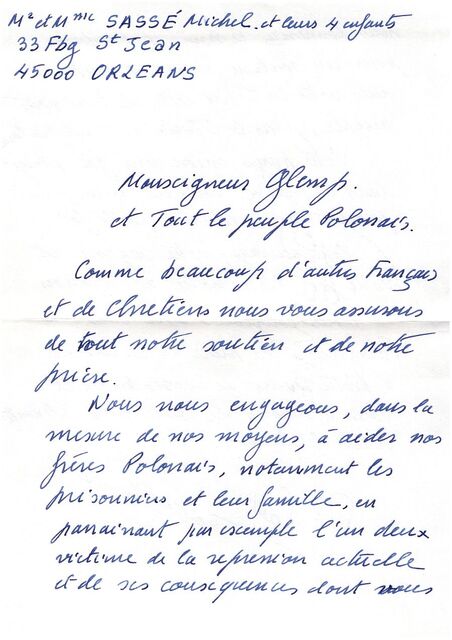 Mr et Mme SASSÉ Michel. et leurs 4 enfants
33 Fbg St Jean
45000 ORLEANS
Monseigneur Glemp.
et Tout le peuple Polonais.
Comme beaucoup d'autres Français
et de Chretiens nous vous assurons
de tout notre soutien et de notre
prière.
Nous nous engageons, dans la
mesure de nos moyens, à aider nos
frères Polonais, notamment les
prisonniers et leur famille, en
parrainant par exemple l'un deux
victime de la repression actuelle
et de ses consequences dont nous